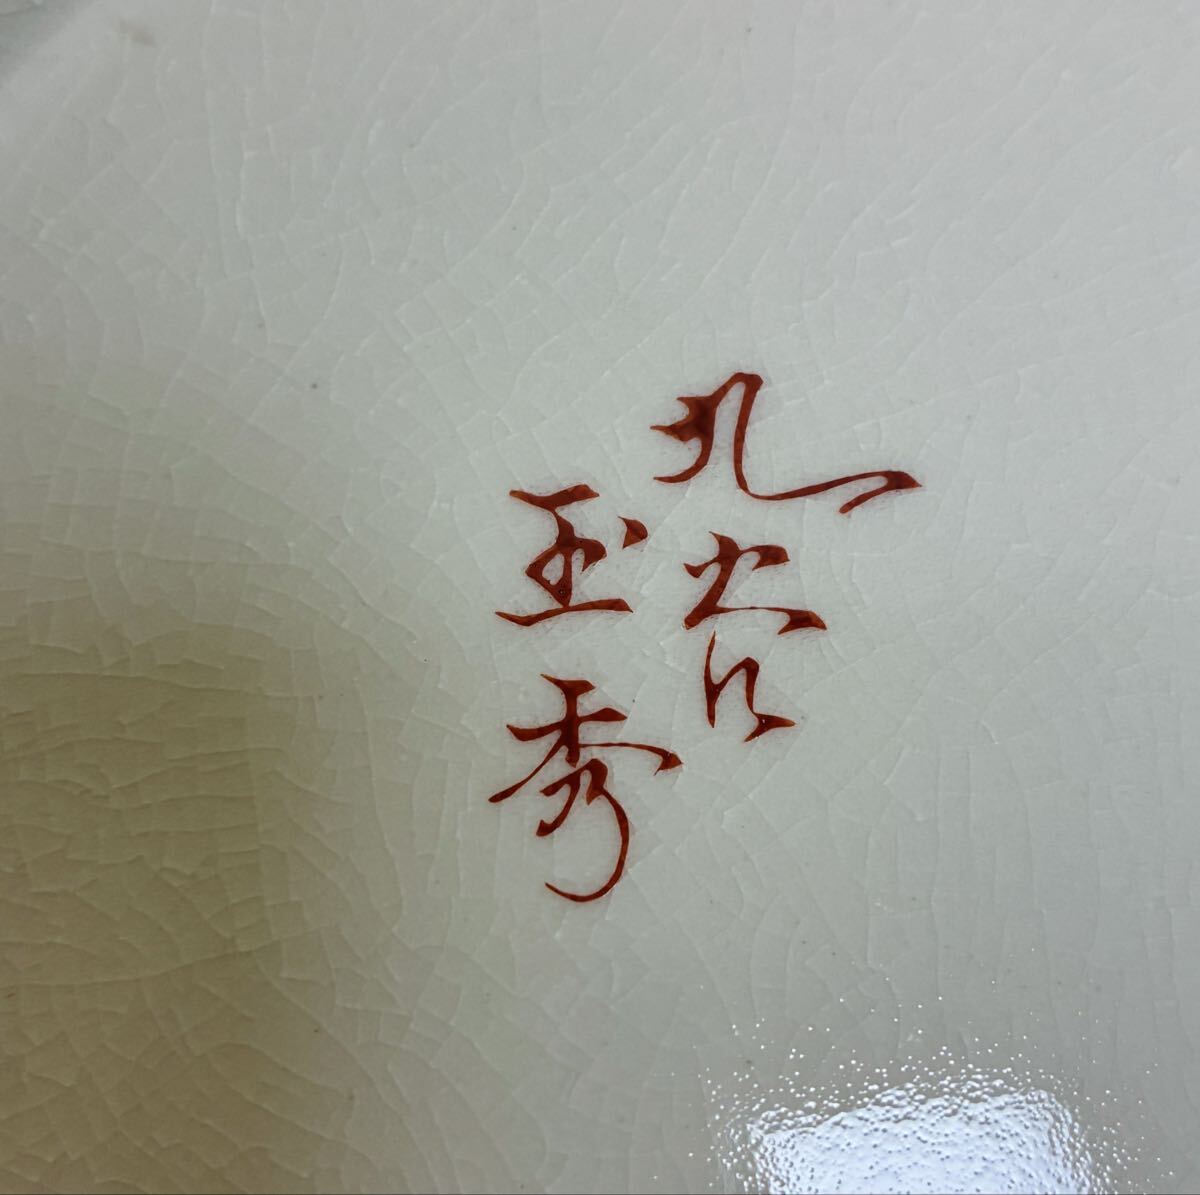 九谷
玉秀